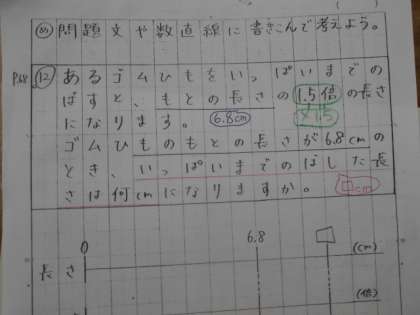 問題文や数直線に書きこんで考えよう。
P.68 ⑫ あるゴムひもをいっぱいまでの
ばすと、もとの長さの1.5倍の長さ
になります。 6.8cm ×1.5
ゴムひものもとの長さが6.8cmの
とき、いっぱいまでのばした長
さは何cmになりますか。 □cm
0 6.8 □ (cm)
長さ
(倍)